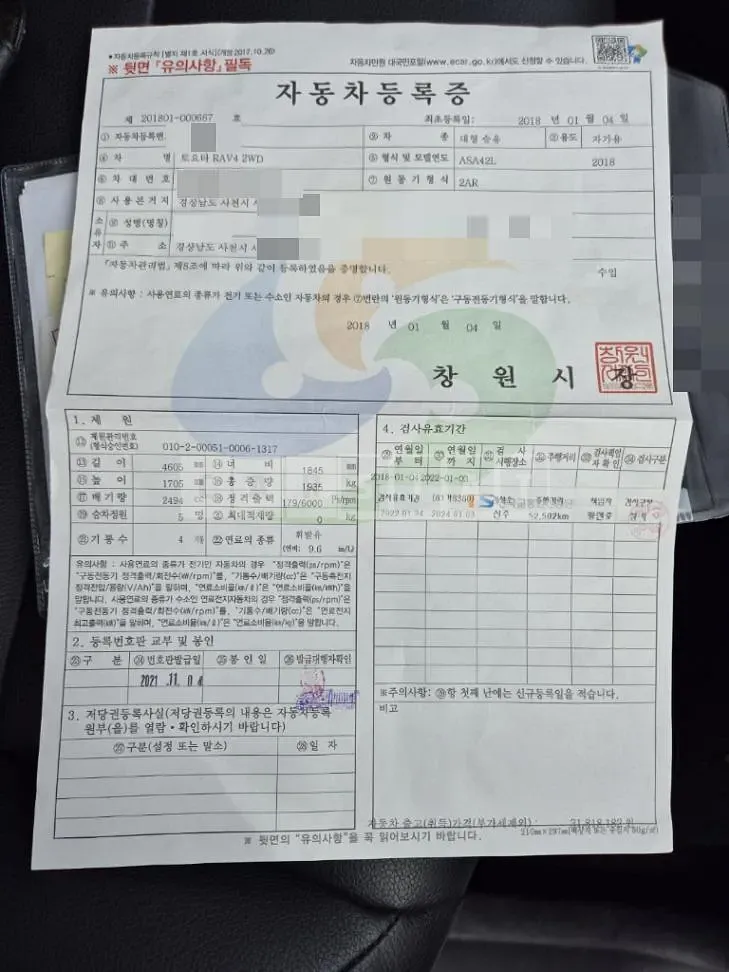 • 자동차등록규칙 [별지 제1호 서식](개정 2017.10.26)
※ 뒷면 『유의사항』 필독
자동차민원 대국민포털(www.ecar.go.kr)에서도 신청할 수 있습니다.
자동차등록증
제 201801-000667 호
최초등록일: 2018 년 01 월 04 일
① 자동차등록번
② 차 종 대형 승용 ③ 용도 자가용
④ 차 명 토요타 RAV4 2WD
⑤ 형식 및 모델연도 ASA42L 2018
⑥ 차 대 번 호
⑦ 원 동 기 형 식 2AR
⑧ 사 용 본 거 지 경상남도 사천시
소유자
⑨ 성명(명칭)
⑪ 주 소 경상남도 사천시
『자동차관리법』 제8조에 따라 위와 같이 등록하였음을 증명합니다.
수입
※ 유의사항 : 사용연료의 종류가 전기 또는 수소인 자동차의 경우 ⑦번란의 '원동기형식'은 '구동전동기형식'을 말합니다.
2018 년 01 월 04 일
창 원 시 장
1. 제 원
⑫ 제원관리번호 (형식승인번호) 010-2-00051-0006-1317
⑬ 길 이 4605 mm ⑭ 너 비 1845 mm
⑮ 높 이 1705 mm ⑯ 총 중 량 1935 kg
⑰ 배 기 량 2494 cc ⑱ 정 격 출 력 179/6000 Ps/rpm
⑲ 승차정원 5 명 ⑳ 최대적재량 0 kg
㉑ 기 통 수 4 기통 ㉒ 연료의 종류 휘발유
(연비: 9.6 km/L)
유의사항 : 사용연료의 종류가 전기만인 자동차의 경우 "정격출력(ps/rpm)"은
"구동전동기 정격출력/회전수(㎾/rpm)"를, "기통수/배기량(cc)"은 "구동축전지
정격전압/용량(V/Ah)"을 말하며, "연료소비율(㎞/ℓ)"은 "연료소비율(㎞/kWh)"를
말합니다. 사용연료의 종류가 수소인 연료전지자동차의 경우 "정격출력(ps/rpm)"은
"구동전동기 정격출력/회전수(㎾/rpm)"를, "기통수/배기량(cc)"은 "연료전지
최고출력(㎾)"을 말하며, "연료소비율(㎞/ℓ)"은 "연료소비율(㎞/kg)"을 말합니다.
2. 등록번호판 교부 및 봉인
㉓ 구 분 ㉔ 번호판발급일 ㉕ 봉 인 일 ㉖ 발급대행자확인
2021 .11. 0 4
3. 저당권등록사실(저당권등록의 내용은 자동차등록
원부(을)를 열람・확인하시기 바랍니다)
㉗ 구분(설정 또는 말소) ㉘ 일 자
4. 검사유효기간
㉙ 연월일부터 ㉚ 연월일까지 ㉛ 검 사 시행장소 ㉜ 주행거리 ㉝ 검사책임자 확인 ㉞ 검사구분
2018-01-04 2022-01-03
검사유효기간 주행거리 책임자 검사구분
2024 01 03 진주 52,502km
※주의사항: ㉙항 첫째 난에는 신규등록일을 적습니다.
비고
자동차 출고(취득)가격(부가세제외) : 31,818,182 원
210㎜×297㎜
※ 뒷면의 "유의사항"을 꼭 읽어보시기 바랍니다.